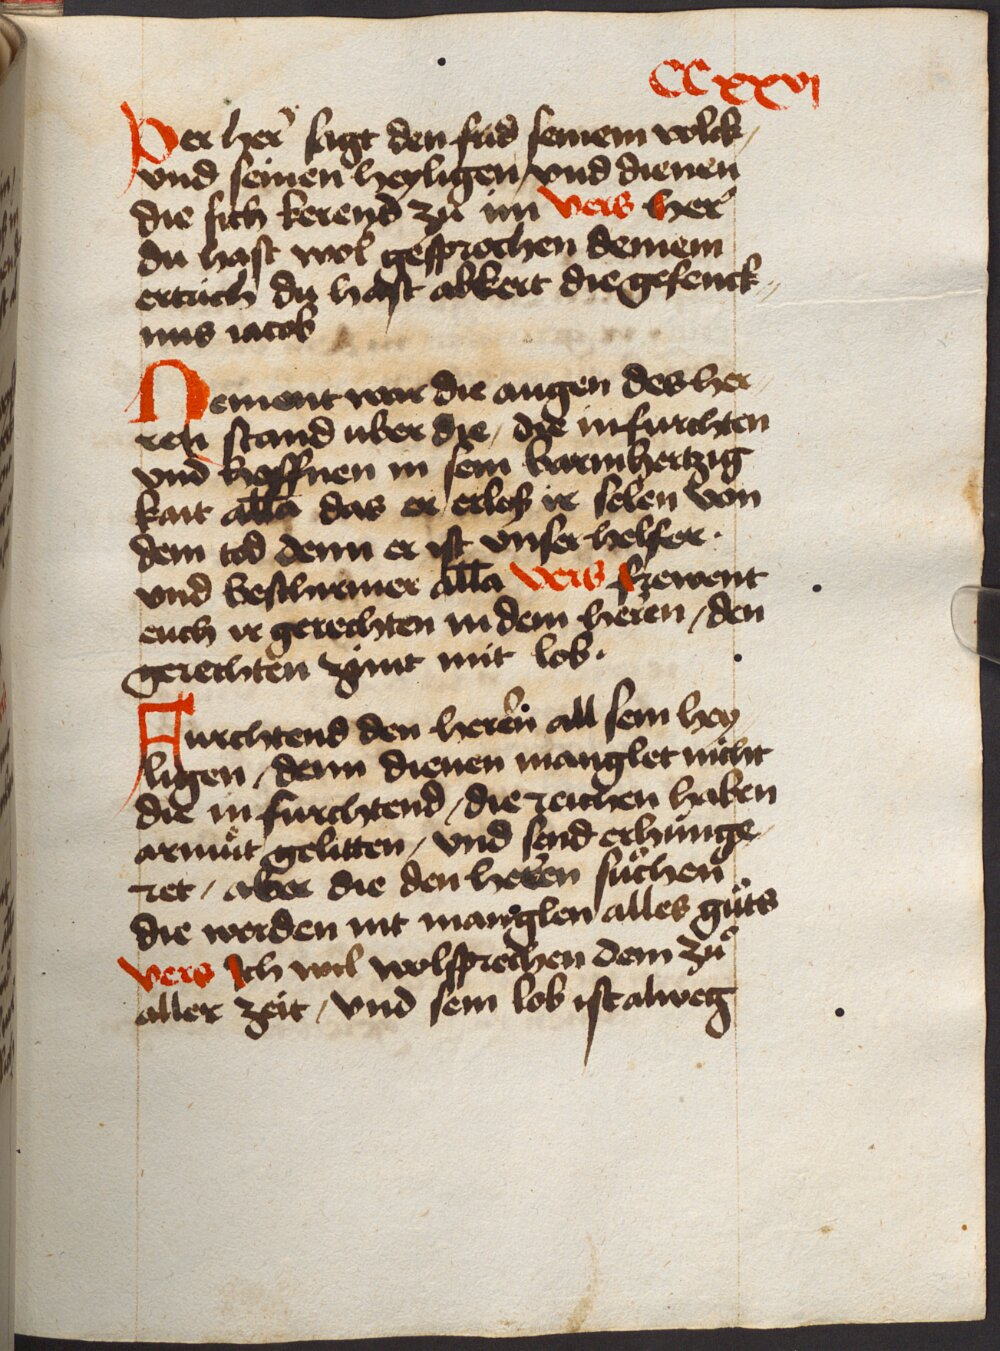 CCxxvi
Der her sagt den frid seinem volck /
vnd seinen heyligen / vnd dienen
die sich kerend zů im vers her
du hast wol gesprochen deinem
ertrich du hast abkert die gefenck
nus iacob
Nement war die augen des her
ren stand uber die / die in furchten
vnd hoffnen in sein barmhertzig
kait alla das er erlöß ir selen von
dem tod denn er ist vnser helfer ·
vnd beschirmer alla vers frewent
euch ir gerechten in dem heren / den
gerechten zimt mit lob ·
Furchtend den heren all sein hey
ligen / denn dienen manglet nicht
die in furchtend / die reichen haben
armůt gelitten / vnd send erhunge
ret / aber die den heren sůchen
die werden nit manglen alles gůts
vers Ich wil wolsprechen dem zů
aller zeit / vnd sein lob ist alweg